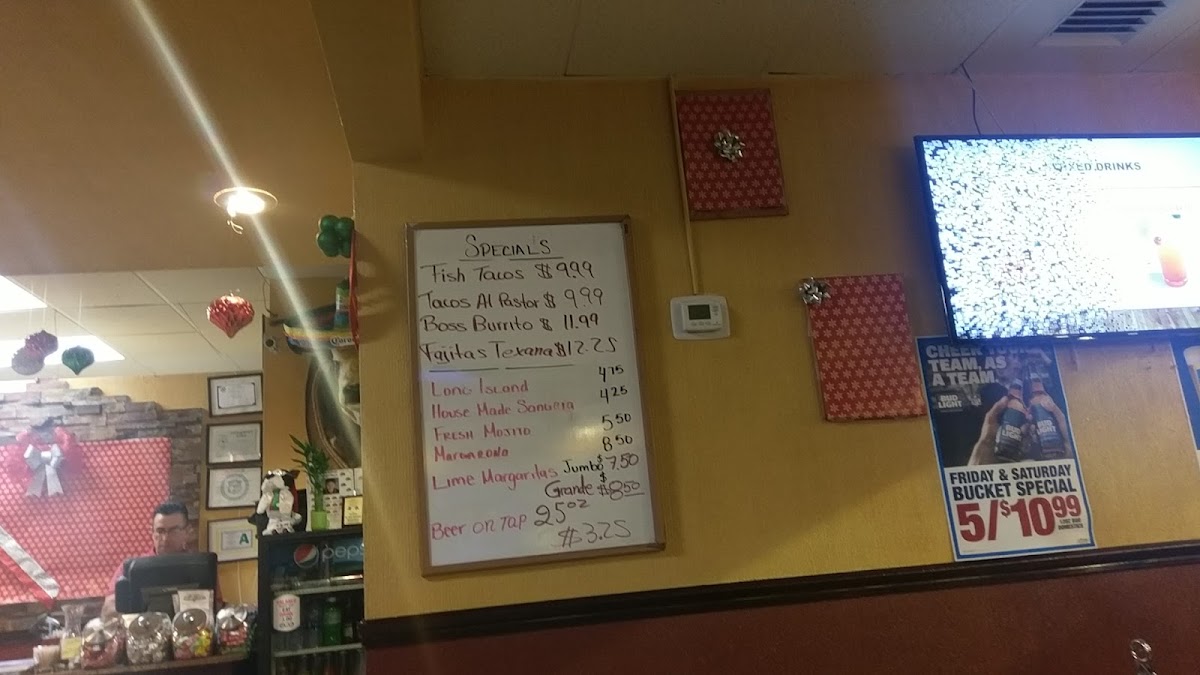 SPECIAL'S
Fish Tacos $ 9.99
Tacos Al Pastor $ 9.99
Boss Burrito $ 11.99
Fajitas Texana $12.25
Long Island 4.75
House Made Sangria 4.25
Fresh Mojito 5.50
8.50
Lime Margaritas Jumbo $7.50
Grande $8.50
Beer on TAP 25oz
$3.25
MIXED DRINKS
TEAM, AS
A TEAM.
BUD
LIGHT
FRIDAY & SATURDAY
BUCKET SPECIAL
5/$10.99
pepsi
A